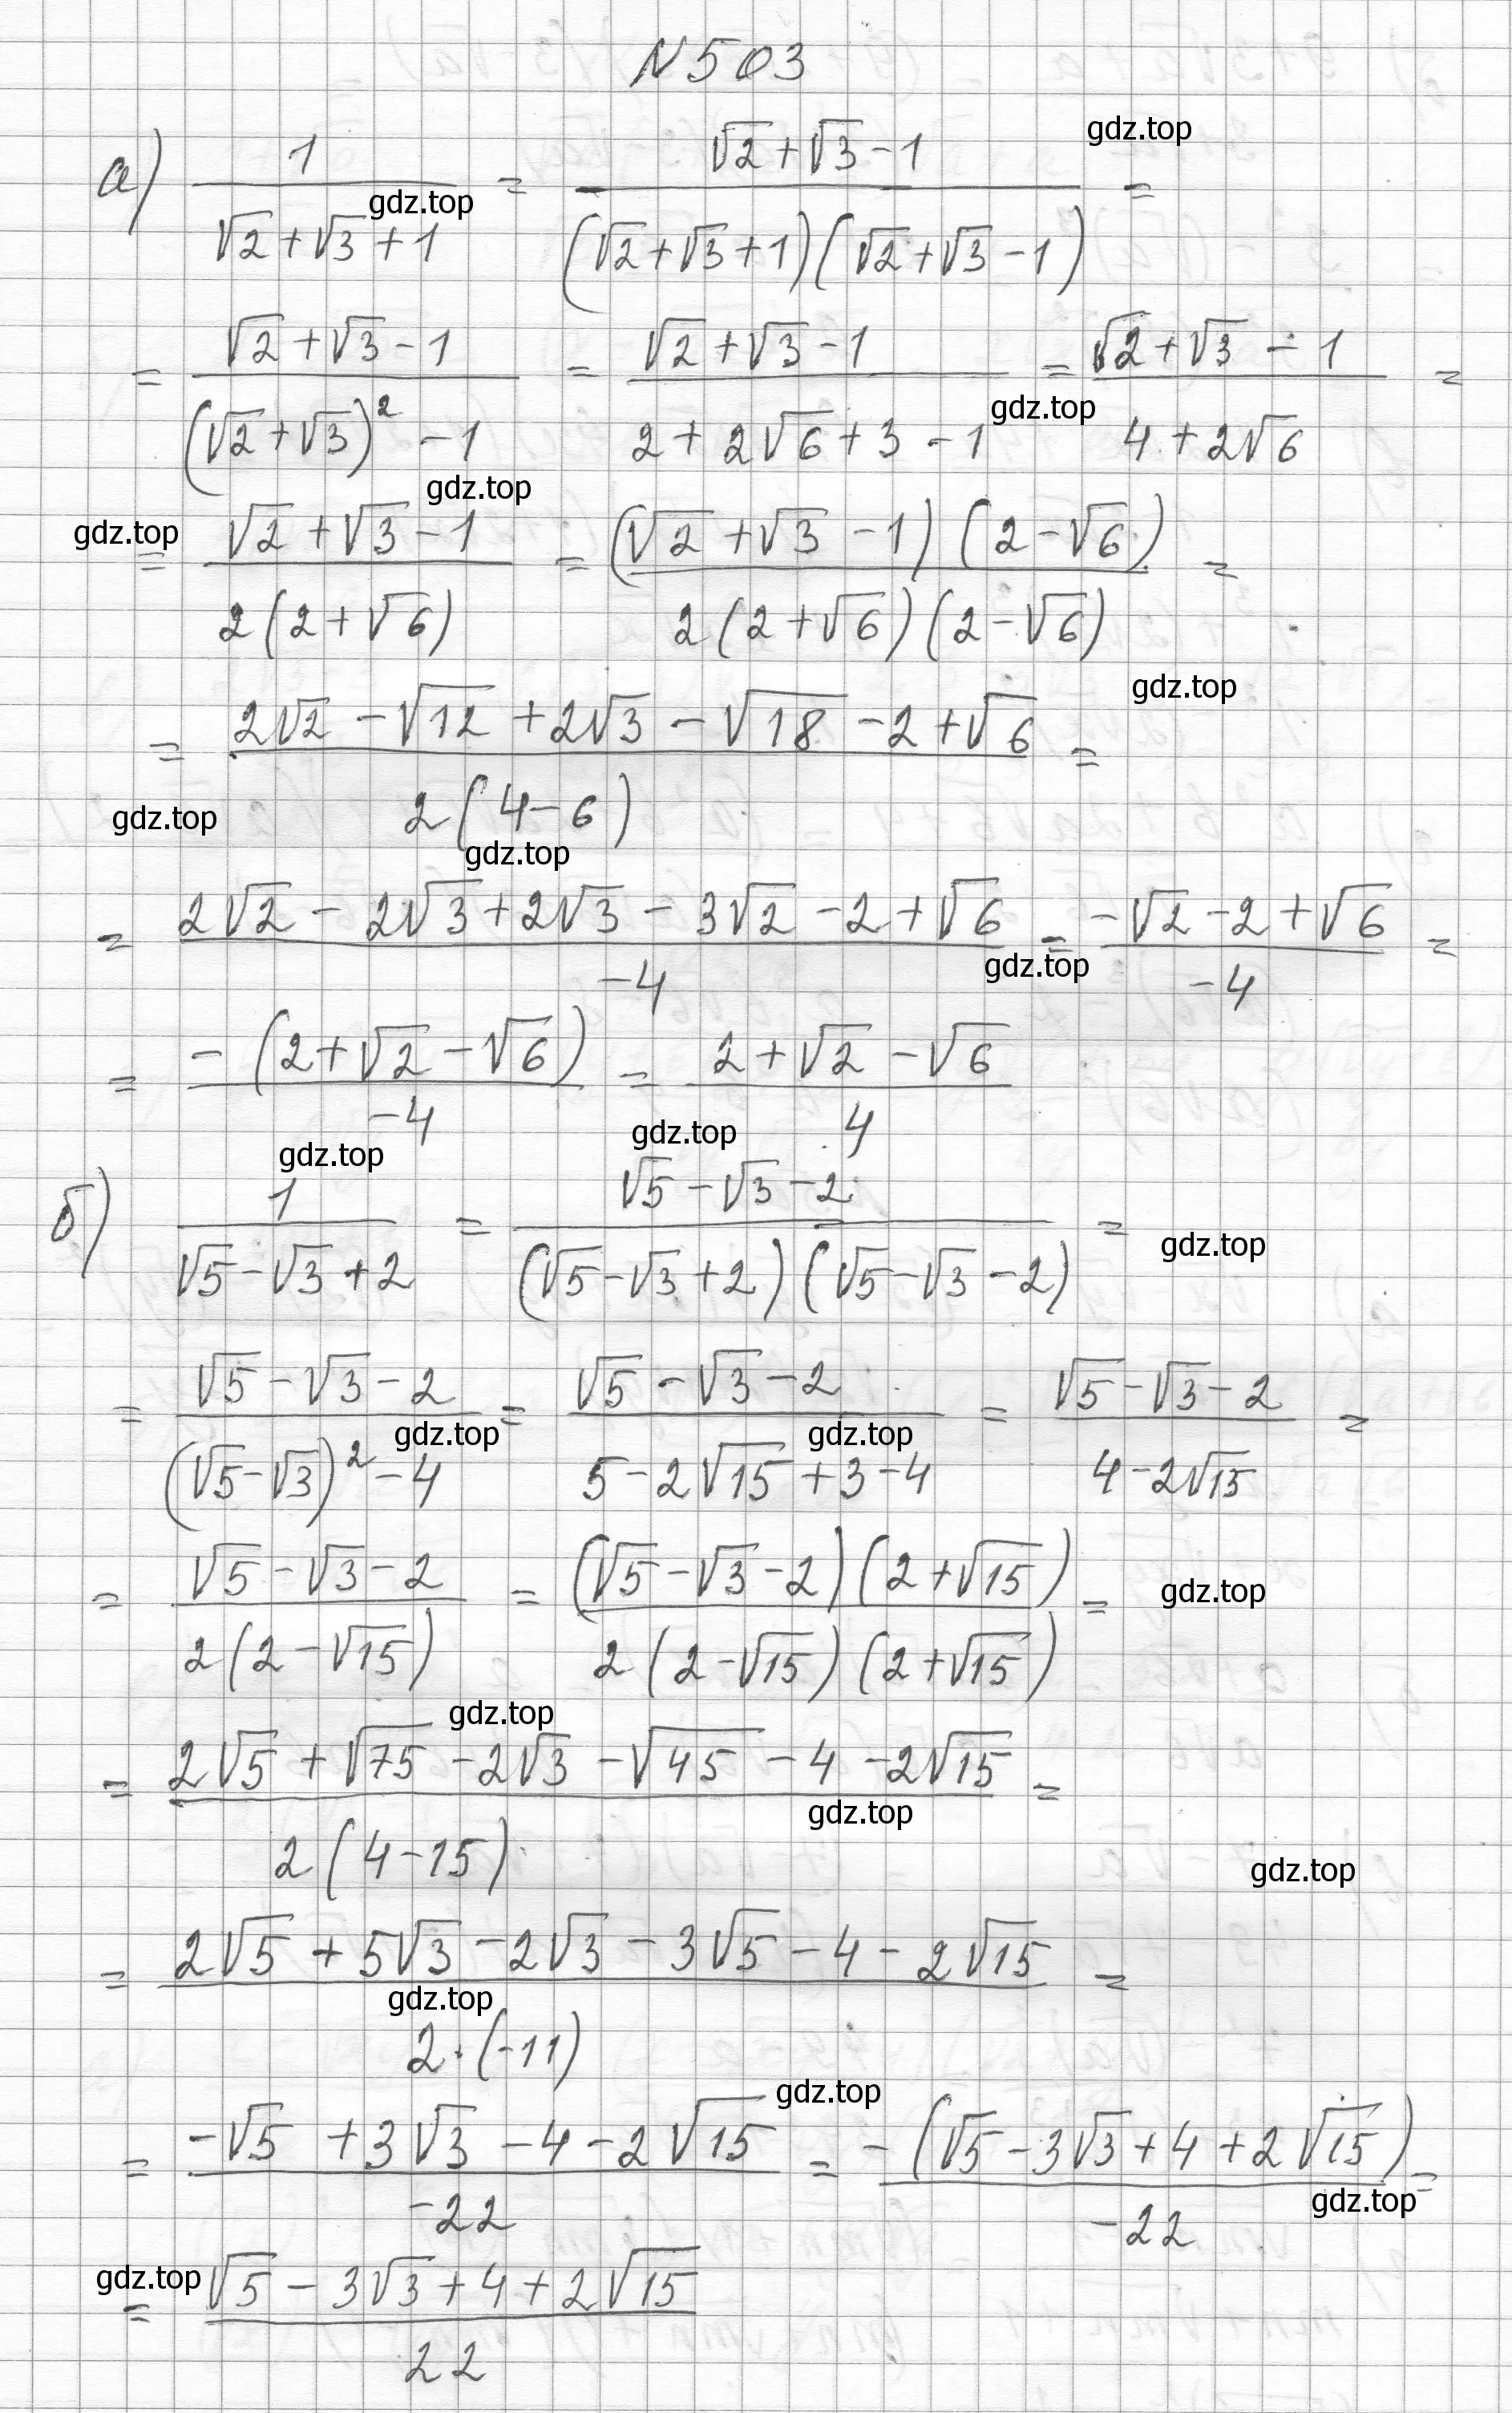 N503
gdz.top
а) 1/(√2+√3+1) = (√2+√3-1)/((√2+√3+1)(√2+√3-1)) =
gdz.top
= (√2+√3-1)/((√2+√3)²-1) = (√2+√3-1)/(2+2√6+3-1) = (√2+√3-1)/(4+2√6) =
gdz.top
gdz.top
gdz.top
= (√2+√3-1)/(2(2+√6)) = ((√2+√3-1)(2-√6))/(2(2+√6)(2-√6)) =
gdz.top
= (2√2-√12+2√3-√18-2+√6)/(2(4-6)) =
gdz.top
gdz.top
= (2√2-2√3+2√3-3√2-2+√6)/(-4) = (-√2-2+√6)/(-4) =
gdz.top
= (-(2+√2-√6))/(-4) = (2+√2-√6)/4
gdz.top
gdz.top
б) 1/(√5-√3+2) = (√5-√3-2)/((√5-√3+2)(√5-√3-2)) =
gdz.top
= (√5-√3-2)/((√5-√3)²-4) = (√5-√3-2)/(5-2√15+3-4) = (√5-√3-2)/(4-2√15) =
gdz.top
gdz.top
= (√5-√3-2)/(2(2-√15)) = ((√5-√3-2)(2+√15))/(2(2-√15)(2+√15)) =
gdz.top
gdz.top
= (2√5+√75-2√3-√45-4-2√15)/(2(4-15)) =
gdz.top
gdz.top
= (2√5+5√3-2√3-3√5-4-2√15)/(2·(-11)) =
gdz.top
gdz.top
= (-√5+3√3-4-2√15)/(-22) = (-(√5-3√3+4+2√15))/(-22) =
gdz.top
gdz.top
= (√5-3√3+4+2√15)/22